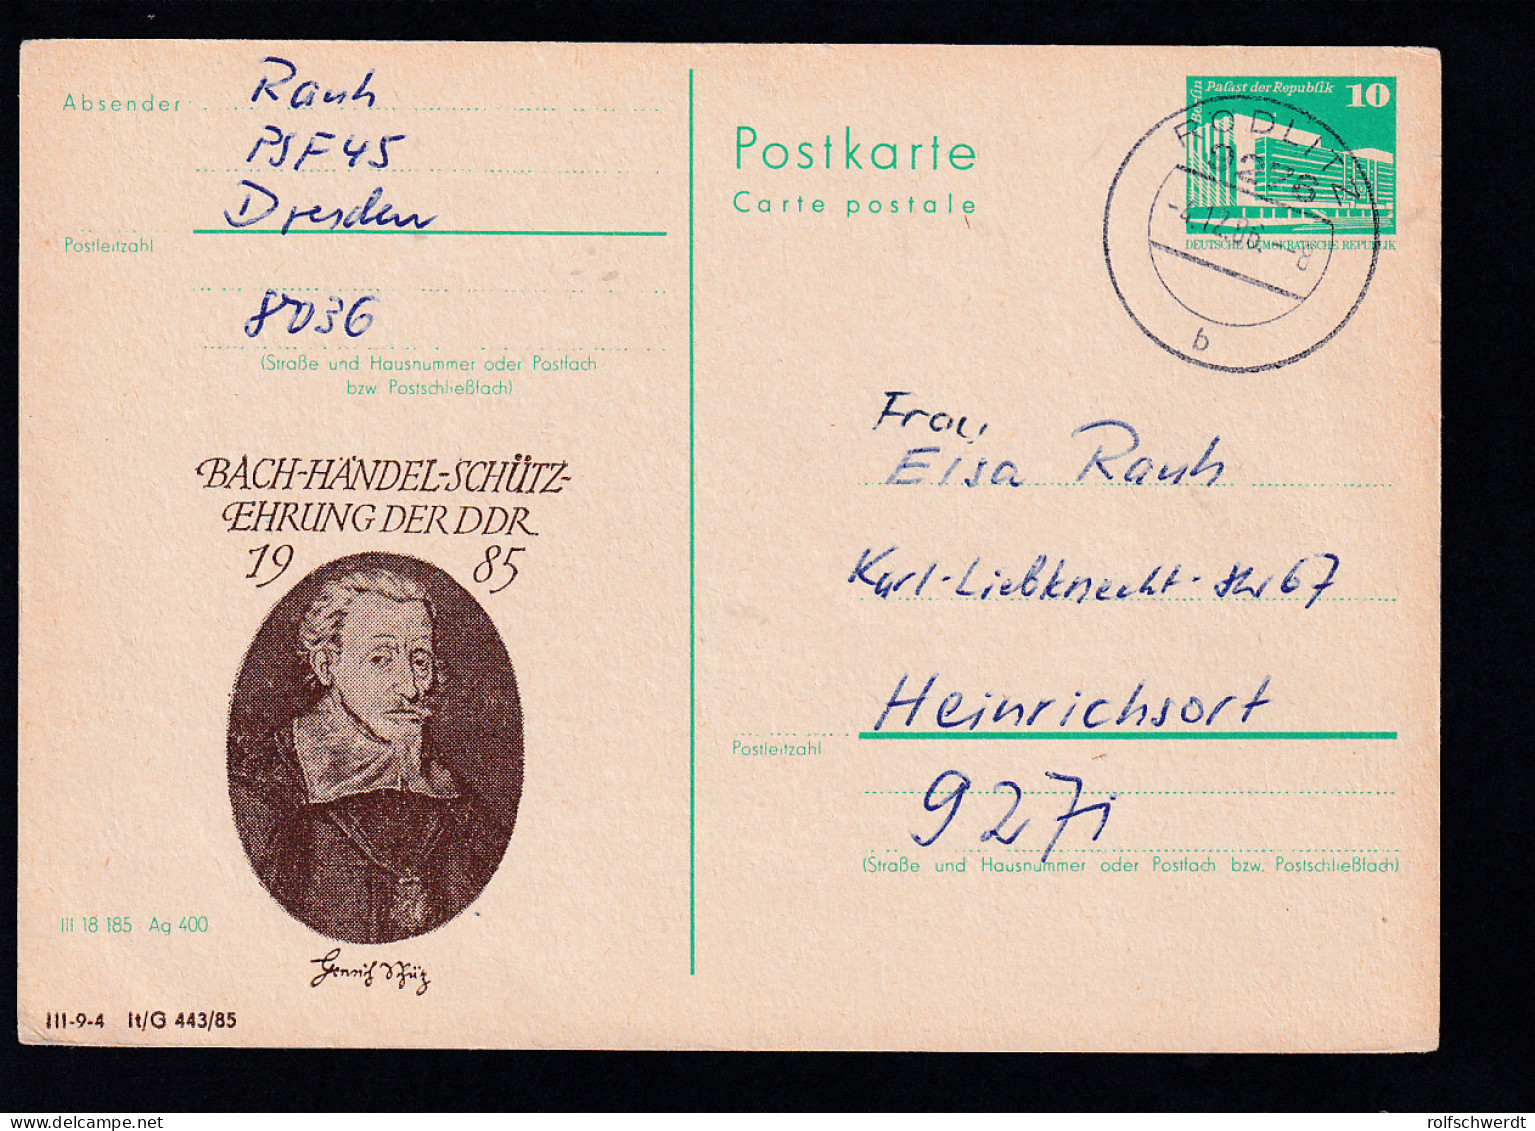 Absender
Rauh
PSF 45
Dresden
Postleitzahl
8036
(Straße und Hausnummer oder Postfach
bzw. Postschließfach)
BACH-HÄNDEL-SCHÜTZ-
EHRUNG DER DDR
1985
III 18 185 Ag 400
Henrich Schütz
III-9-4 It/G 443/85
Postkarte
Carte postale
Berlin
Palast der Republik
10
DEUTSCHE DEMOKRATISCHE REPUBLIK
RÖDLITZ
9276
-4.12.86.--8
b
Frau
Elsa Rauh
Karl-Liebknecht-Str 67
Heinrichsort
Postleitzahl
9271
(Straße und Hausnummer oder Postfach bzw. Postschließfach)
rolfschwerdt